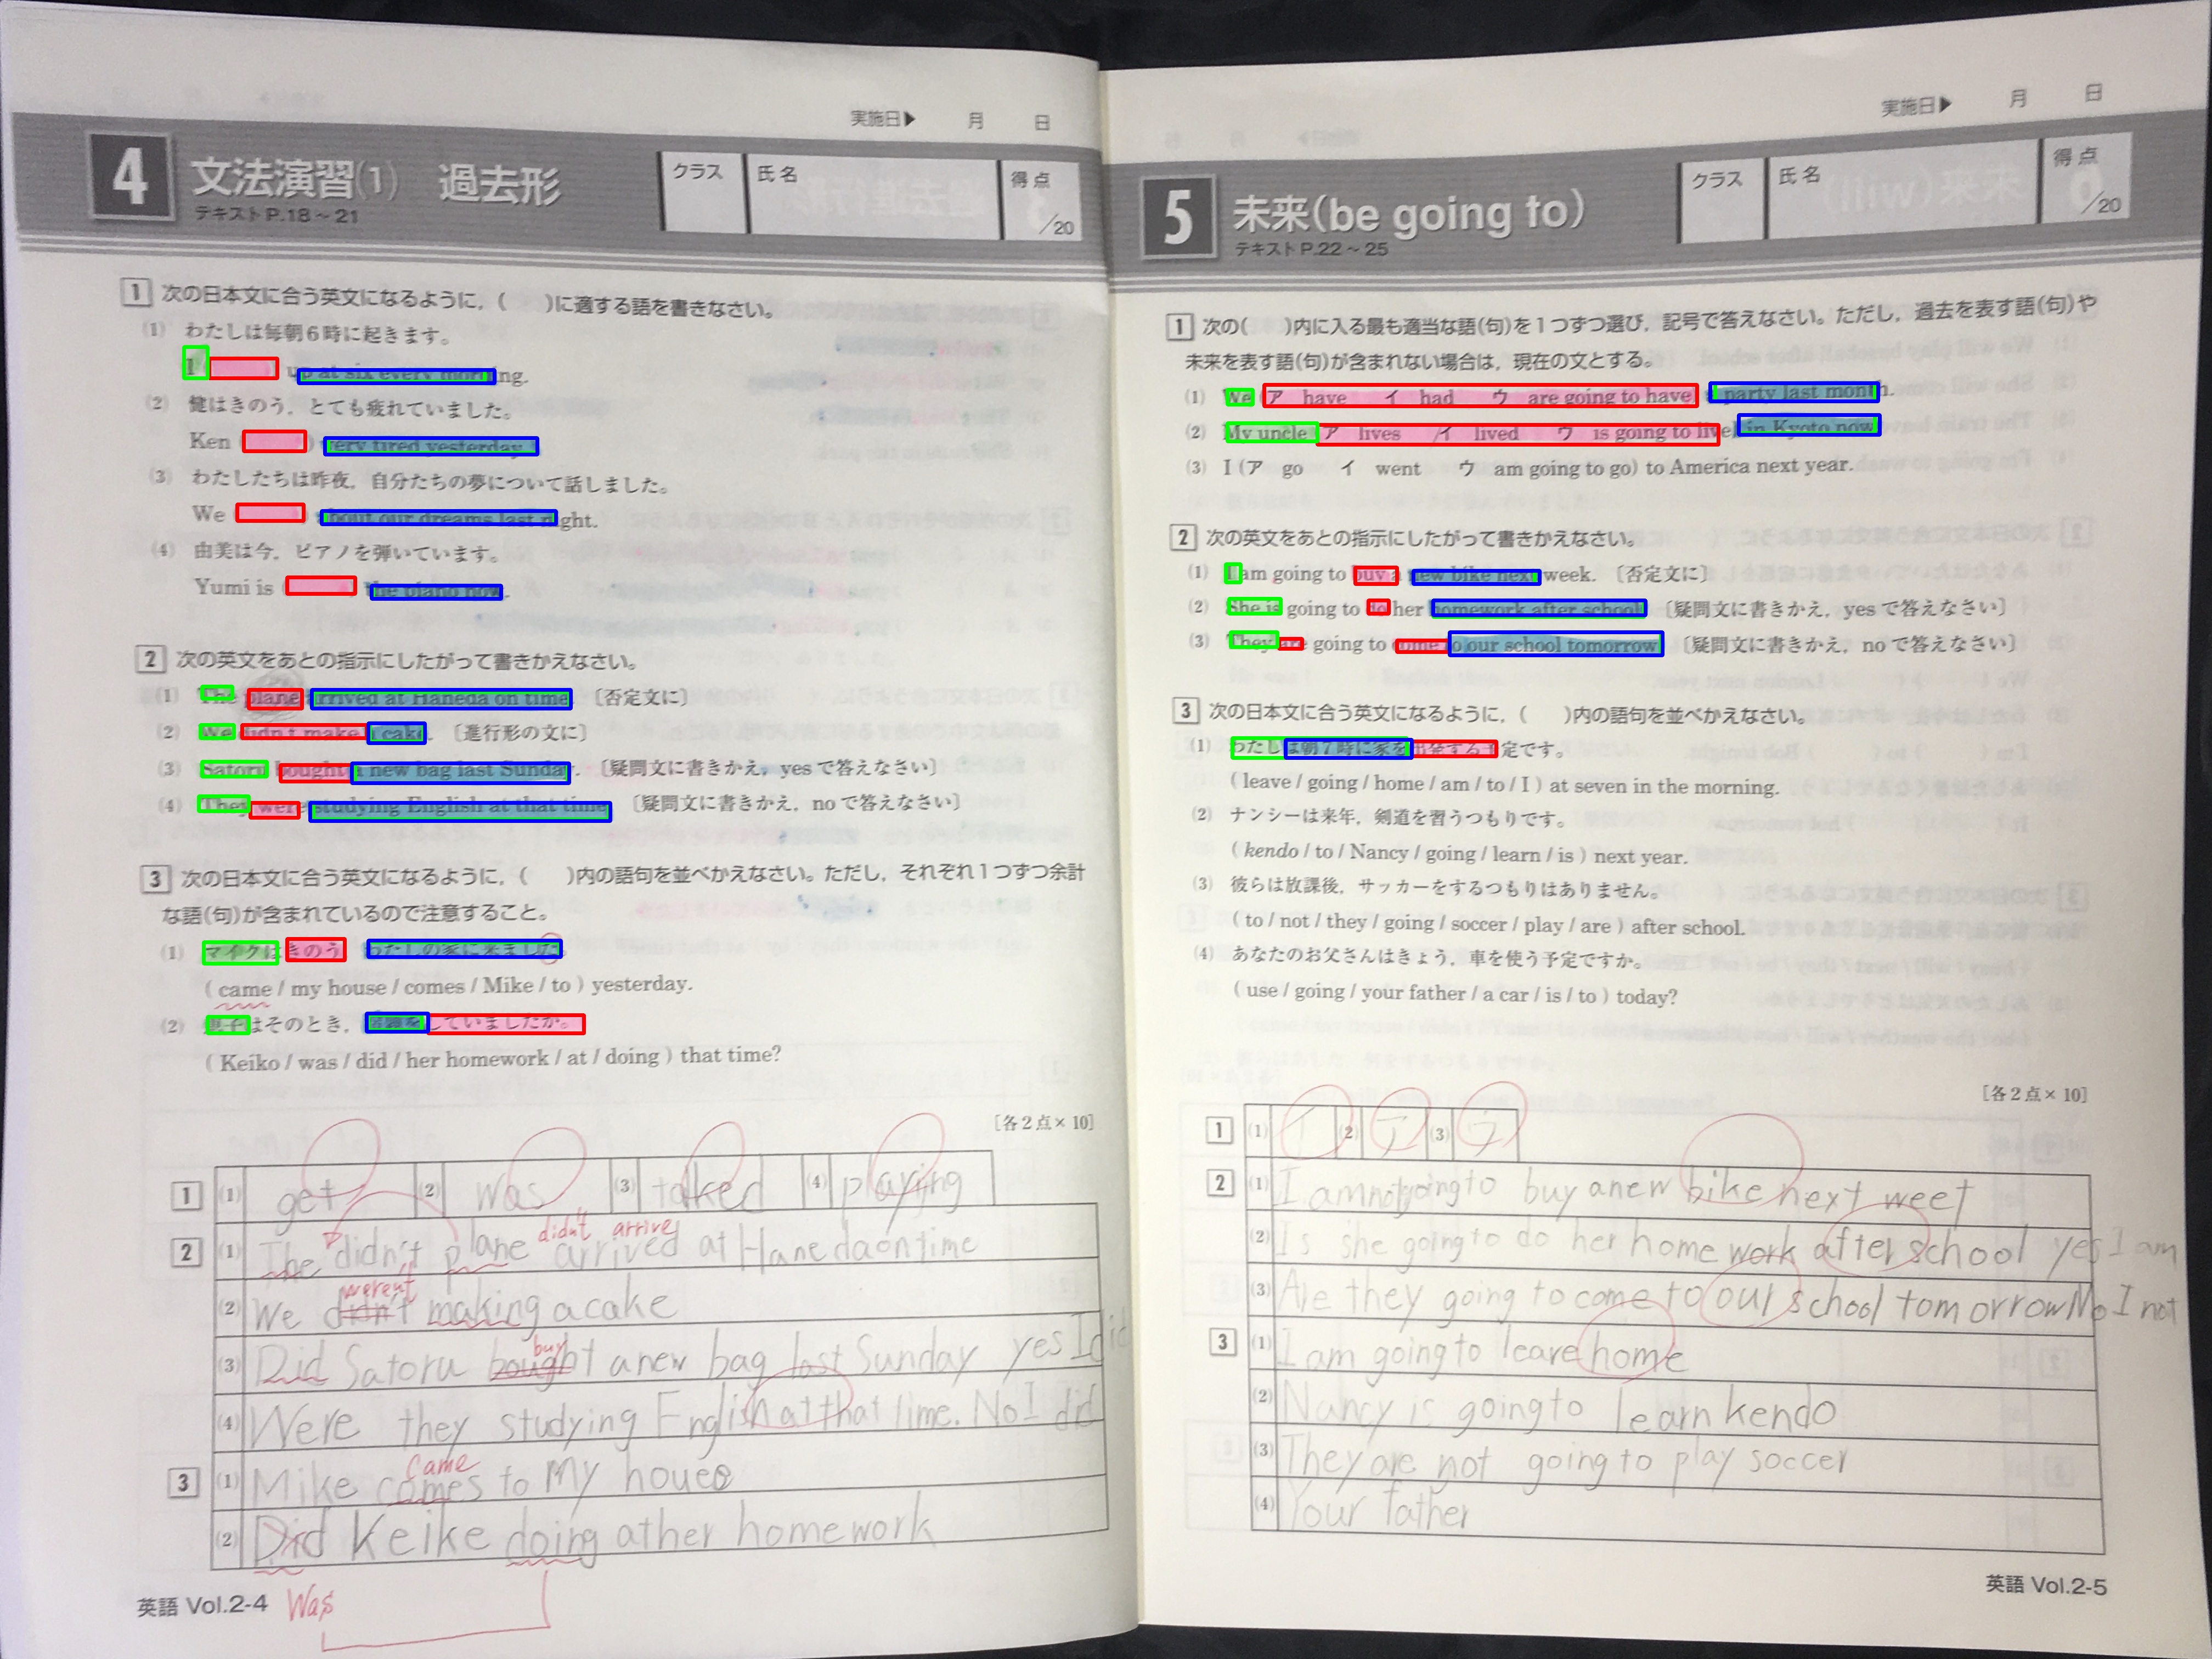 実施日▶ 月 日
4 文法演習(1) 過去形
テキストP.18～21
クラス 氏名 得点 /20
1 次の日本文に合う英文になるように,( )に適する語を書きなさい。
(1) わたしは毎朝6時に起きます。
I ( ) up at six every morning.
(2) 健はきのう,とても疲れていました。
Ken ( ) very tired yesterday.
(3) わたしたちは昨夜,自分たちの夢について話しました。
We ( ) about our dreams last night.
(4) 由美は今,ピアノを弾いています。
Yumi is ( ) the piano now.
2 次の英文をあとの指示にしたがって書きかえなさい。
(1) The plane arrived at Haneda on time. 〔否定文に〕
(2) We didn't make a cake. 〔進行形の文に〕
(3) Satoru bought a new bag last Sunday. 〔疑問文に書きかえ,yesで答えなさい〕
(4) They were studying English at that time. 〔疑問文に書きかえ,noで答えなさい〕
3 次の日本文に合う英文になるように,( )内の語句を並べかえなさい。ただし,それぞれ1つずつ余計
な語(句)が含まれているので注意すること。
(1) マイクはきのう,わたしの家に来ました。
( came / my house / comes / Mike / to ) yesterday.
(2) 恵子はそのとき,宿題をしていましたか。
( Keiko / was / did / her homework / at / doing ) that time?
[各2点×10]
1 (1) get (2) was (3) taked (4) playing
didn't arrive
2 (1) The didn't plane arrived at Hanedaontime
weren't
(2) We didn't making acake
buy
(3) Did Satoru bought anew bag last Sunday yes I did
(4) Were they studying English at that time. No I did
came
3 (1) Mike comes to My houeo
(2) Did Keike doing ather homework
英語 Vol.2-4 Was
実施日▶ 月 日
5 未来(be going to)
テキストP.22～25
クラス 氏名 得点 /20
1 次の( )内に入る最も適当な語(句)を1つずつ選び,記号で答えなさい。ただし,過去を表す語(句)や
未来を表す語(句)が含まれない場合は,現在の文とする。
(1) We (ア have イ had ウ are going to have) a party last month.
(2) My uncle (ア lives イ lived ウ is going to live) in Kyoto now.
(3) I (ア go イ went ウ am going to go) to America next year.
2 次の英文をあとの指示にしたがって書きかえなさい。
(1) I am going to buy a new bike next week. 〔否定文に〕
(2) She is going to do her homework after school. 〔疑問文に書きかえ,yesで答えなさい〕
(3) They are going to come to our school tomorrow. 〔疑問文に書きかえ,noで答えなさい〕
3 次の日本文に合う英文になるように,( )内の語句を並べかえなさい。
(1) わたしは朝7時に家を出発する予定です。
( leave / going / home / am / to / I ) at seven in the morning.
(2) ナンシーは来年,剣道を習うつもりです。
( kendo / to / Nancy / going / learn / is ) next year.
(3) 彼らは放課後,サッカーをするつもりはありません。
( to / not / they / going / soccer / play / are ) after school.
(4) あなたのお父さんはきょう,車を使う予定ですか。
( use / going / your father / a car / is / to ) today?
[各2点×10]
1 (1) イ (2) ア (3) ウ
2 (1) I amnotgoingto buy anew bike next weet
(2) Is she going to do her home work after school yes I am
(3) Are they going to come to our school tomorrow No I not
3 (1) I am going to leave home
(2) Nancy is going to learn kendo
(3) They are not going to play soccer
(4) Your father
英語 Vol.2-5